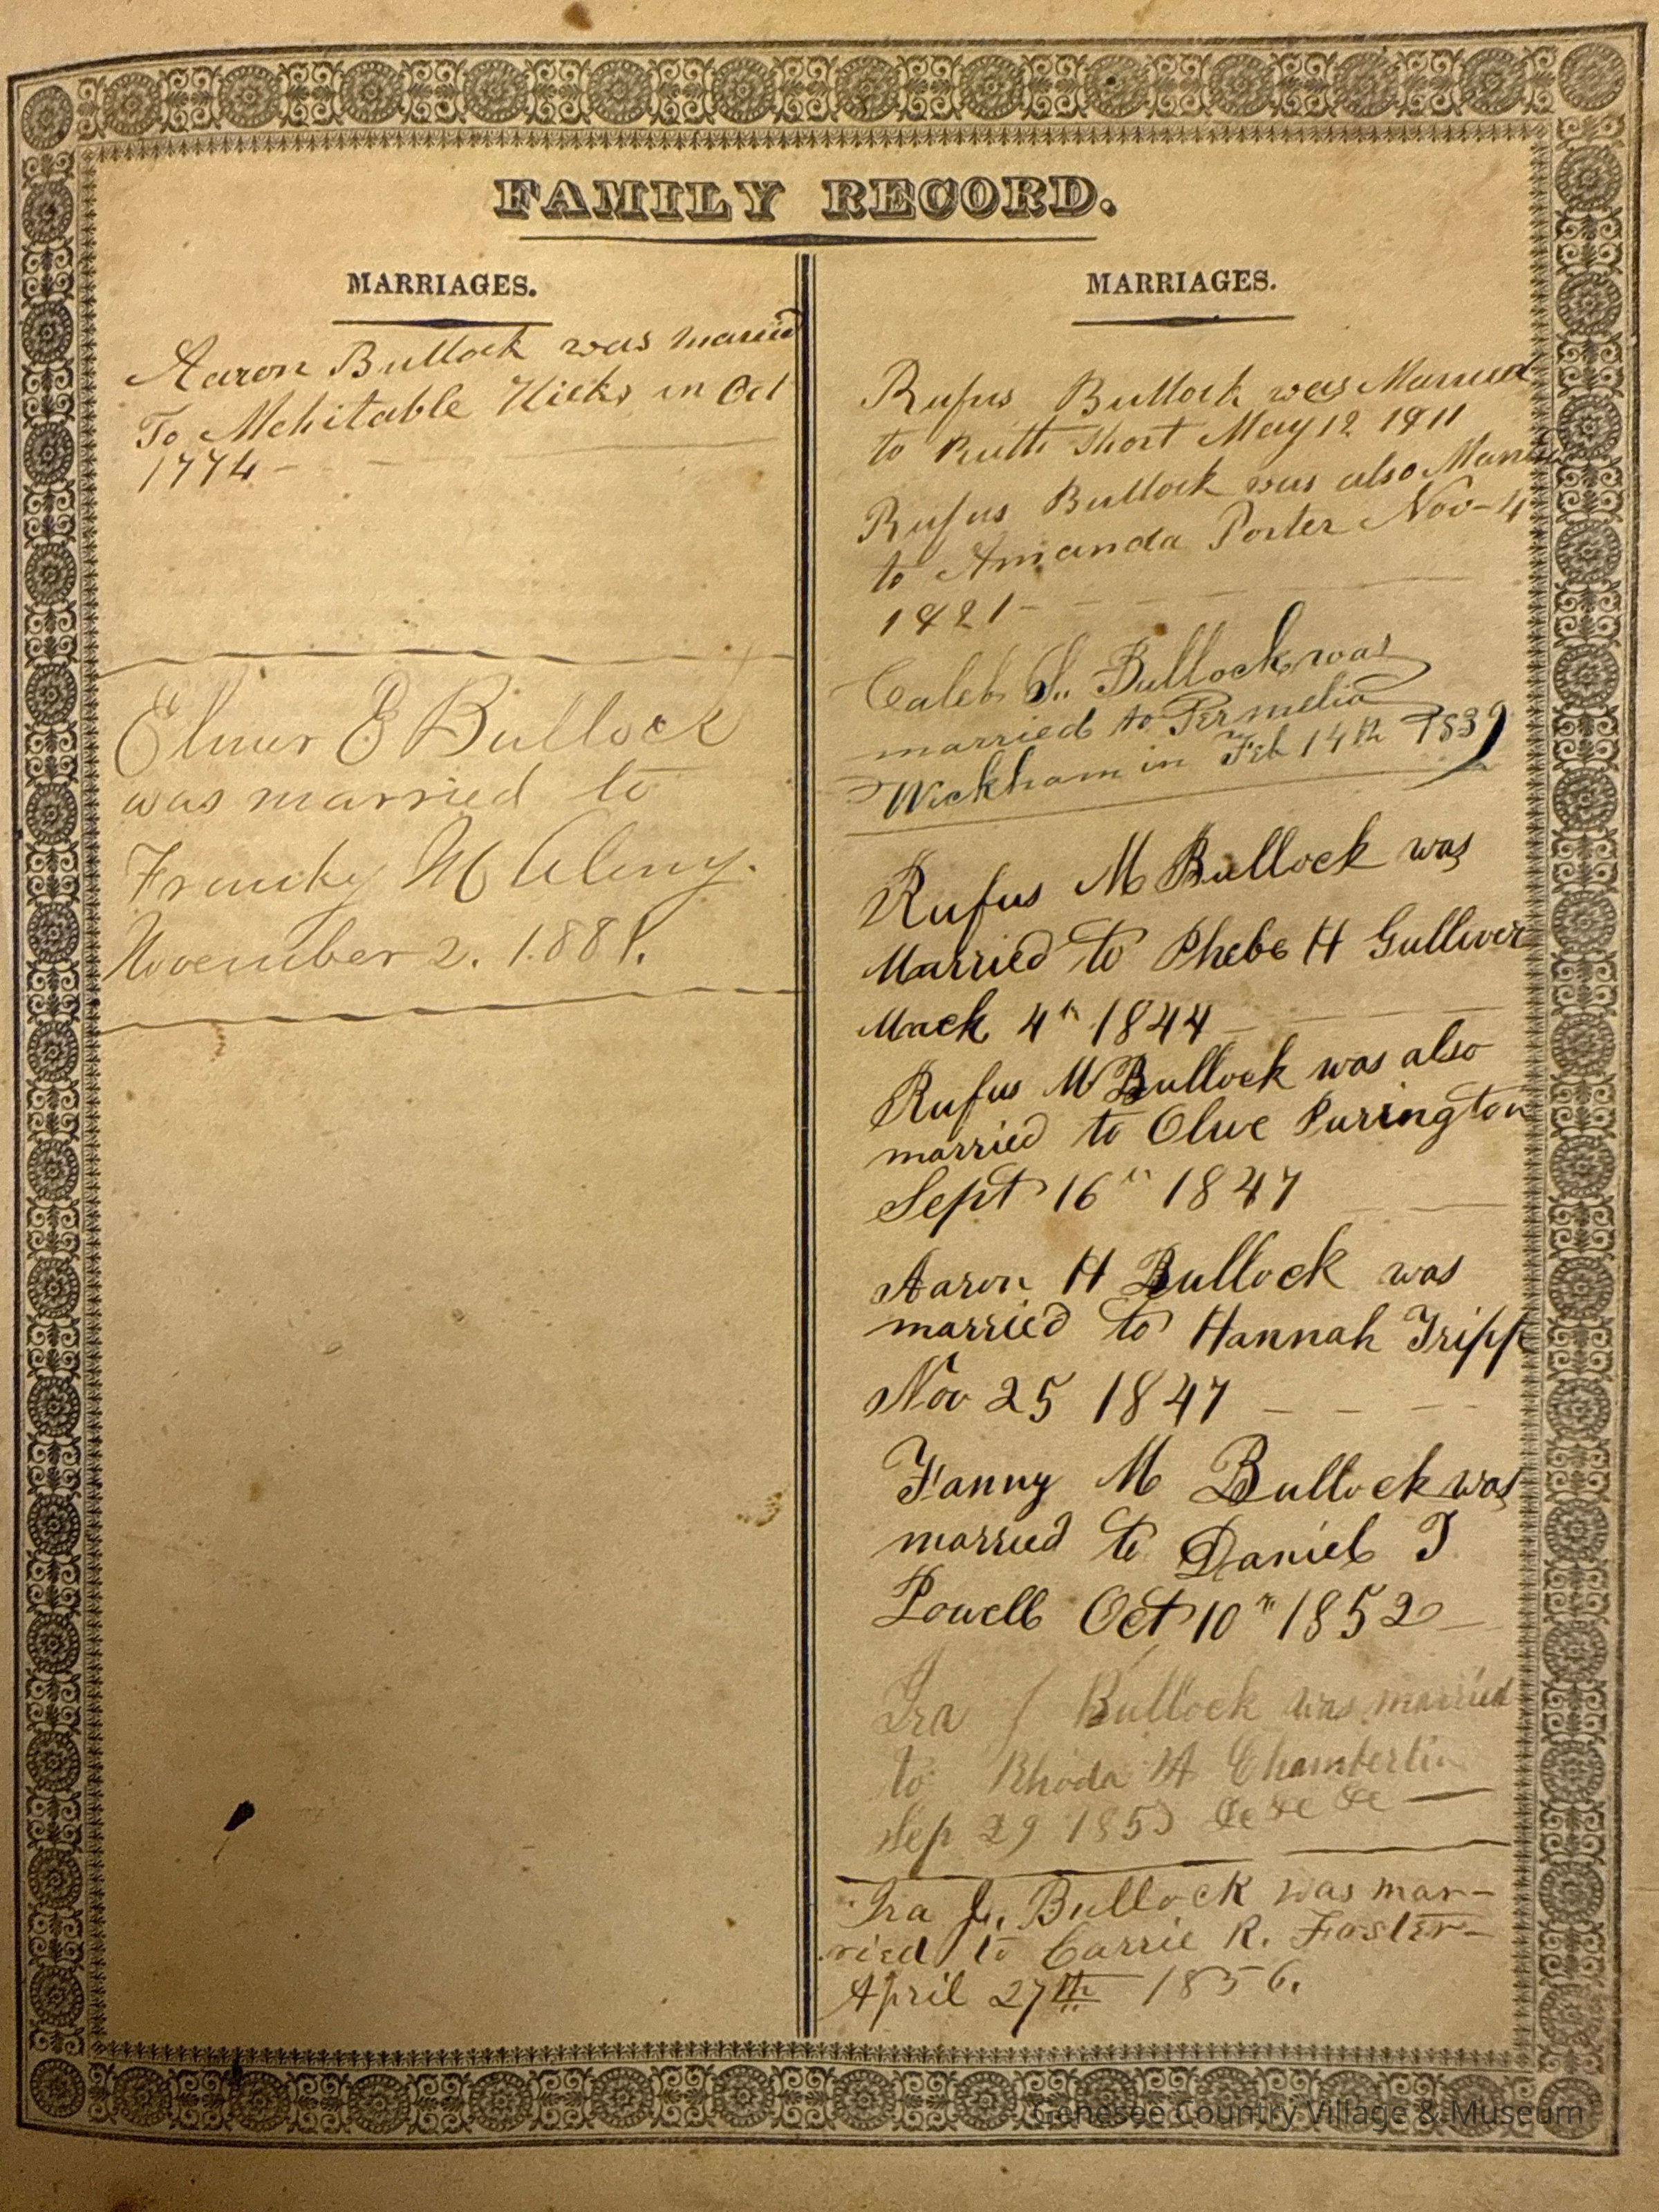 FAMILY RECORD.
MARRIAGES.
Aaron Bullock was maried
To Mehitable Hicks in Oct
1774
Elmer E Bullock
was married to
Franky M Almy.
November 2. 1881.
MARRIAGES.
Rufus Bullock was Married
to Ruith Short May 12 1811
Rufus Bullock was also Married
to Amanda Porter Nov-4
1821-
Caleb S. Bullock was
married to Permelia
Wickham in Feb 14th 1839
Rufus M Bullock was
Married to Phebe H Gulliver
Mack 4th 1844
Rufus M Bullock was also
married to Olive Purington
Sept 16th 1847
Aaron H Bullock was
married to Hannah Tripp
Nov 25 1847
Fanny M Bullock was
married to Daniel T
Powell Oct 10th 1852
Ira J Bullock was married
to Rhoda A Chamberlin
Sep 29 1853 &c &c &c
Ira J. Bullock was mar-
ried to Carrie R. Foster-
April 27th 1856.
Genesee Country Village & Museum